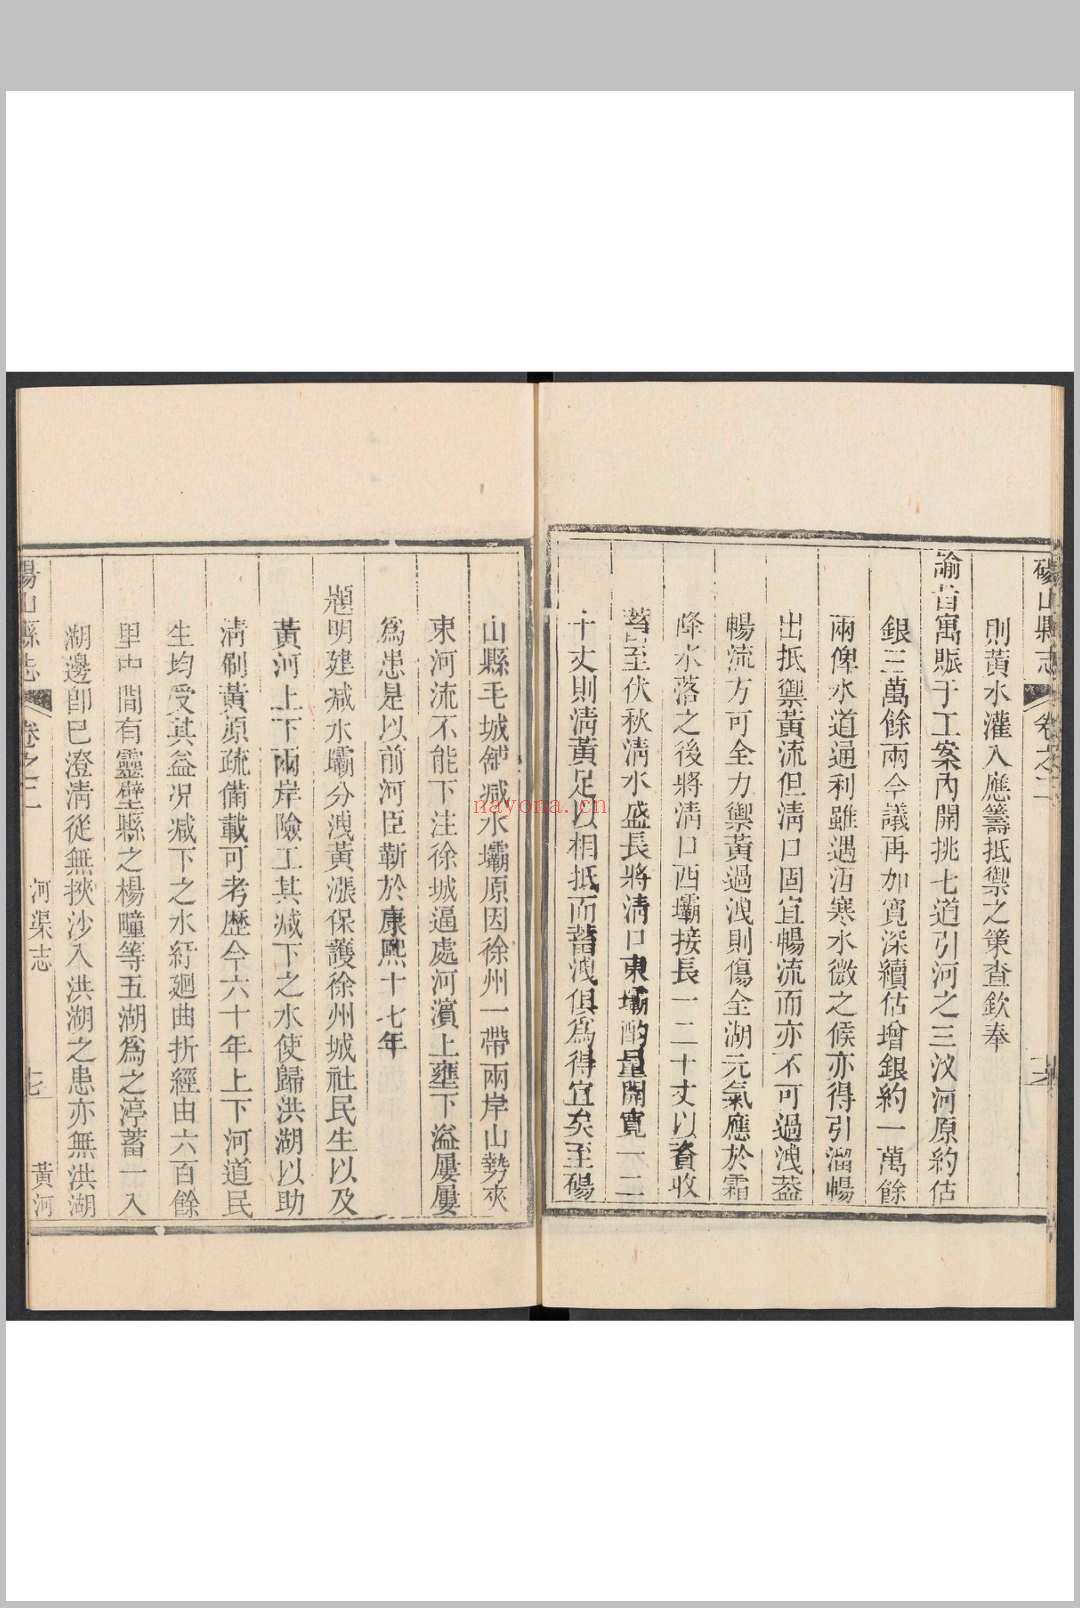 碭山縣志
卷之二
則黃水灌入應籌抵禦之策查欽奉
諭旨寓賑于工案內開挑七道引河之三汊河原約估
銀三萬餘兩今議再加寬深續估增銀約一萬餘
兩俾水道通利雖遇沍寒水微之候亦得引溜暢
出抵禦黃流但淸口固宜暢流而亦不可過洩葢
暢流方可全力禦黃過洩則傷全湖元氣應於霜
降水落之後將淸口西壩接長一二十丈以資收
蓄至伏秋淸水盛長將淸口東壩酌量開寬一二
十丈則淸黃足以相抵而蓄洩俱爲得宜矣至碭
山縣毛城舖减水壩原因徐州一帶兩岸山勢夾
束河流不能下注徐城逼處河濱上壅下溢屢屢
爲患是以前河臣靳於康熙十七年
題明建减水壩分洩黃漲保護徐州城社民生以及
黃河上下兩岸險工其减下之水使歸洪湖以助
淸刷黃源疏備載可考歷今六十年上下河道民
生均受其益况减下之水紆廻曲折經由六百餘
里中間有靈璧縣之楊疃等五湖爲之渟蓄一入
湖邊卽已澄淸從無挾沙入洪湖之患亦無洪湖
碭山縣志
卷之二
河渠志
七
黃河
nayona.cn